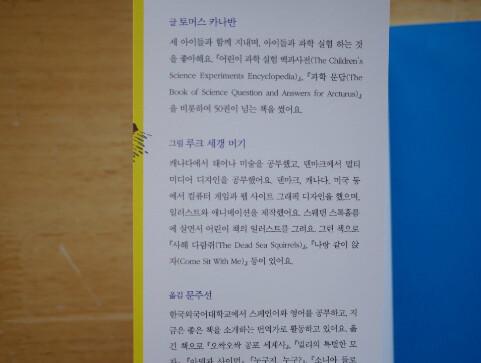 글 토머스 카나반
세 아이들과 함께 지내며, 아이들과 과학 실험 하는 것
을 좋아해요. 『어린이 과학 실험 백과사전(The Children's
Science Experiments Encyclopedia)』, 『과학 문답(The
Book of Science Question and Answers for Arcturus)』
을 비롯하여 50권이 넘는 책을 썼어요.
그림 루크 세갱 머기
캐나다에서 태어나 미술을 공부했고, 덴마크에서 멀티
미디어 디자인을 공부했어요. 덴마크, 캐나다, 미국 등
에서 컴퓨터 게임과 웹 사이트 그래픽 디자인을 했으며,
일러스트와 애니메이션을 제작했어요. 스웨덴 스톡홀름
에 살면서 어린이 책의 일러스트를 그려요. 그린 책으로
『사해 다람쥐(The Dead Sea Squirrels)』, 『나랑 같이 앉
자(Come Sit With Me)』 등이 있어요.
옮김 문주선
한국외국어대학교에서 스페인어와 영어를 공부하고, 지
금은 좋은 책을 소개하는 번역가로 활동하고 있어요. 옮
긴 책으로 『오싹오싹 공포 세계사』, 『빌리의 특별한 모
자』, 사이먼』, 『누구지, 누구?』, 『소니아 들로